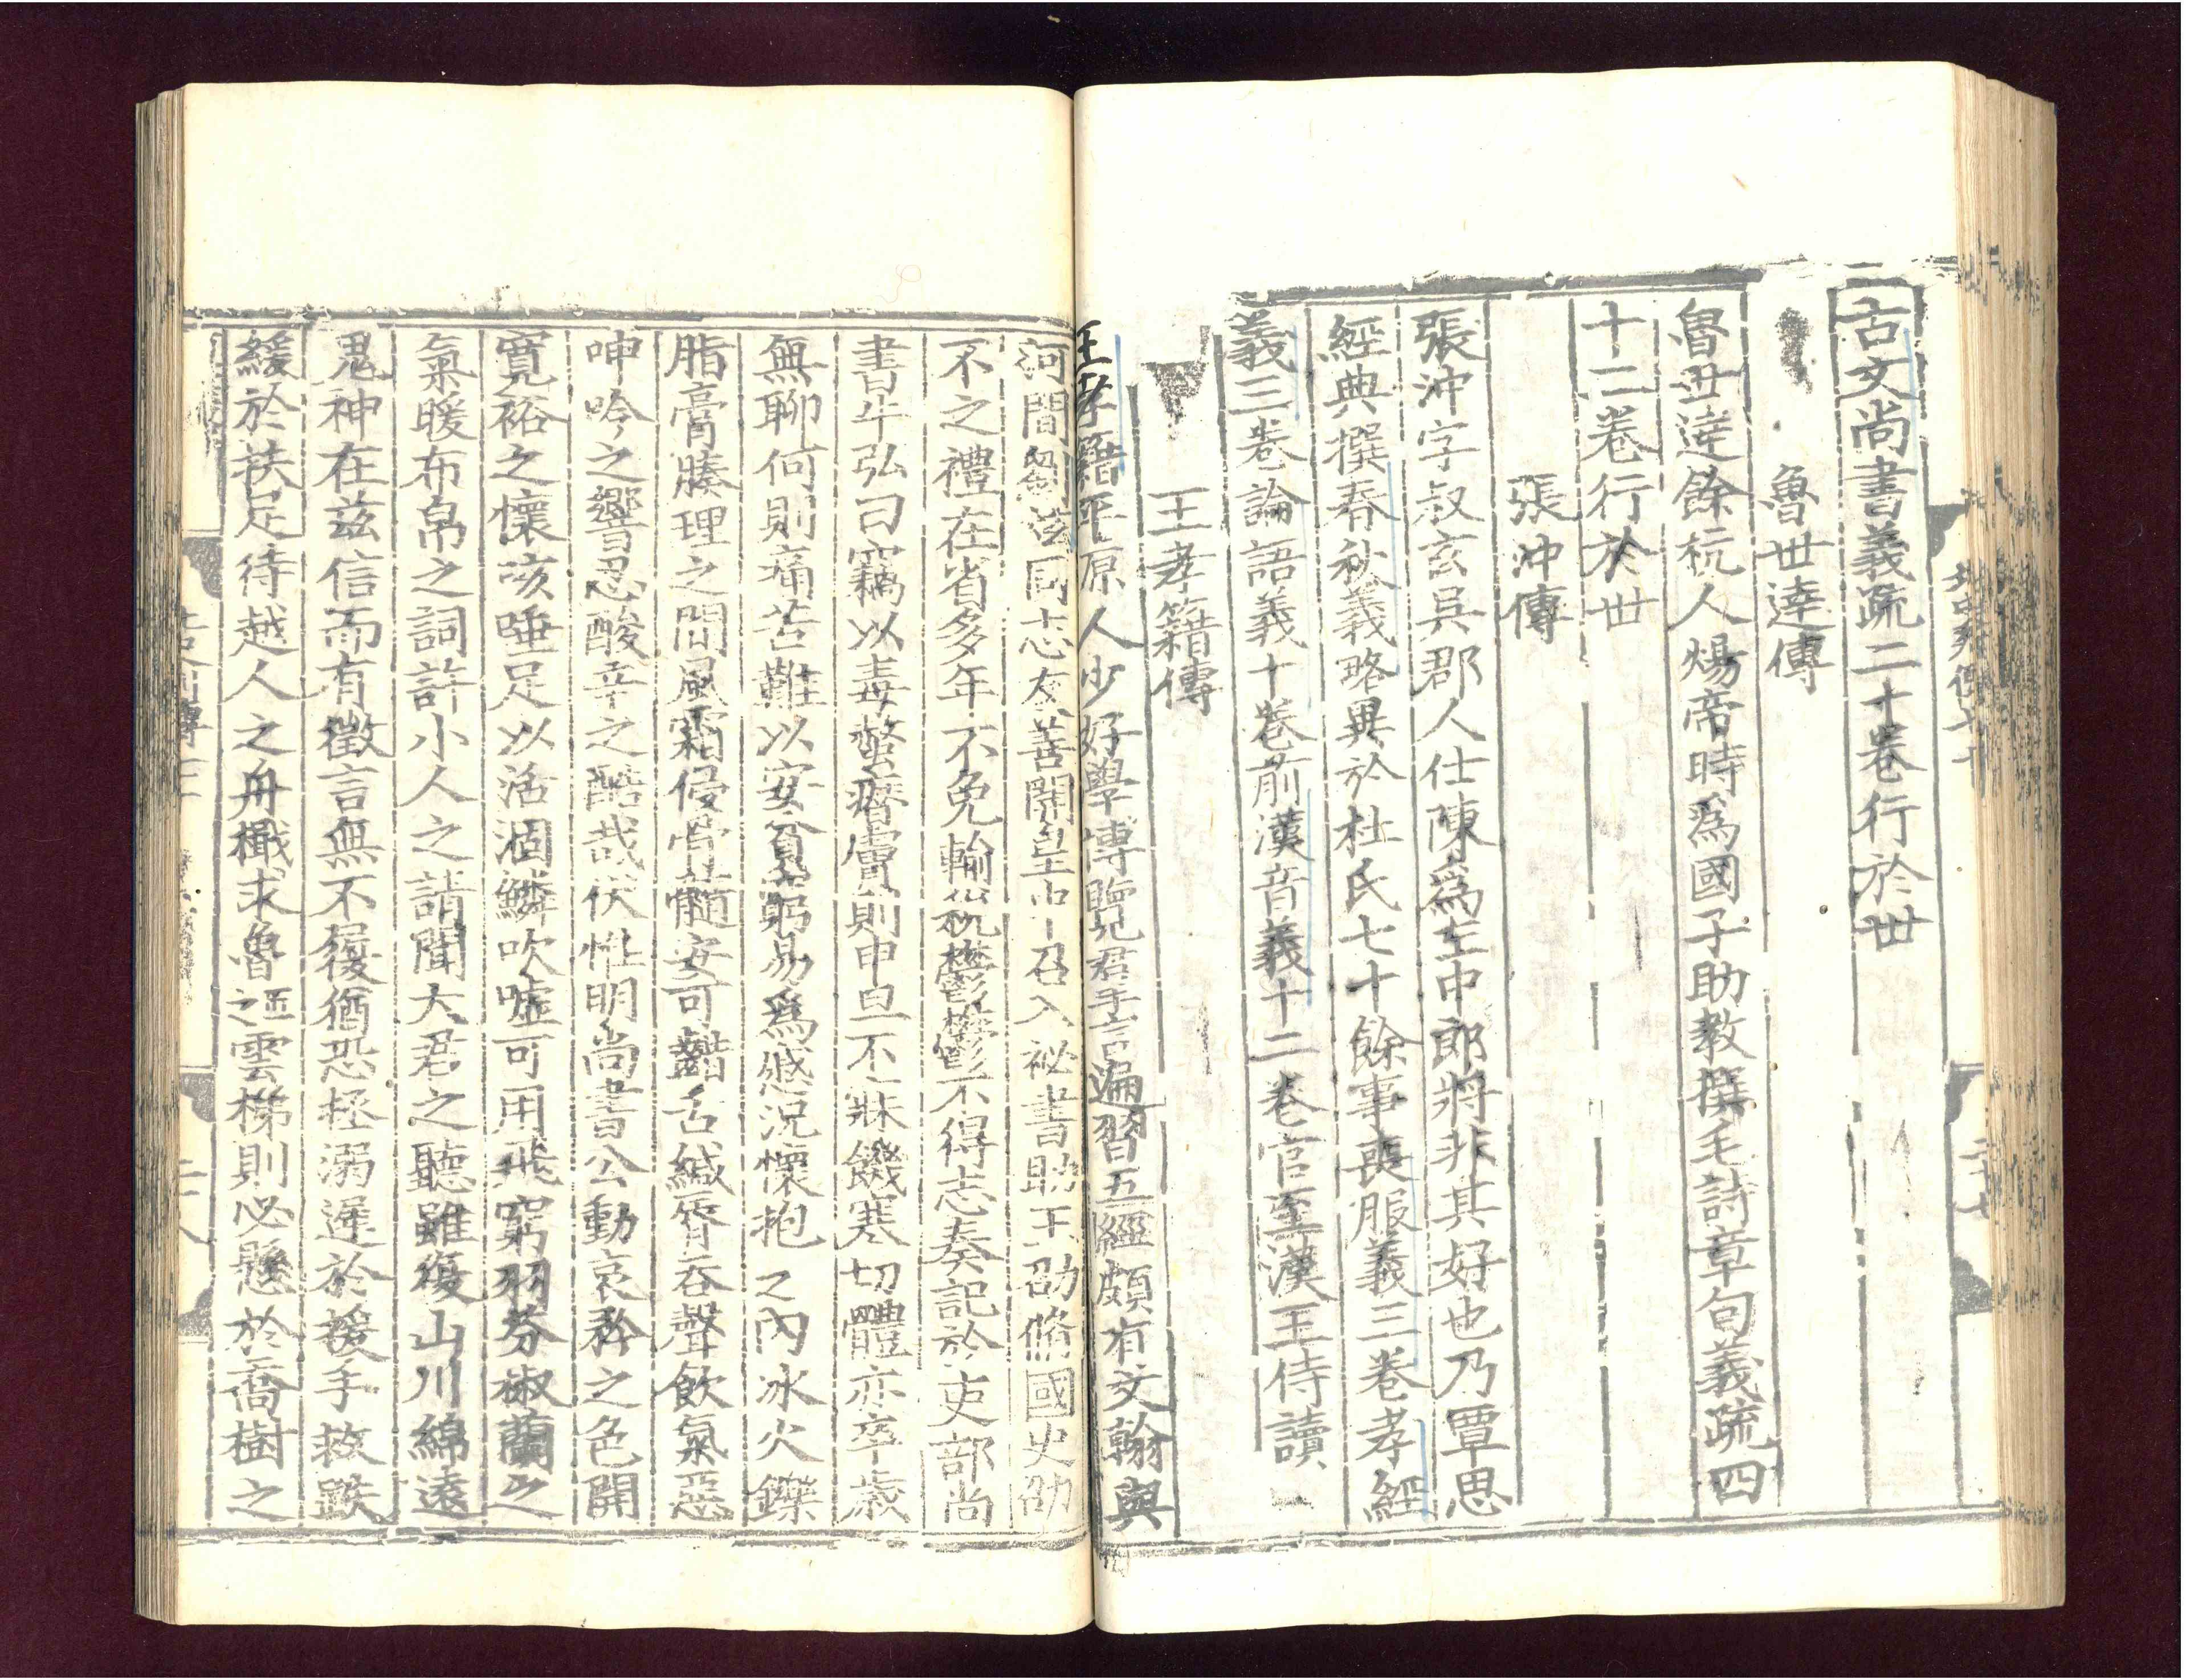 古文尚書義疏二十卷行於世
魯世達傳
魯世達餘杭人煬帝時爲國子助教撰毛詩章句義疏四
十二卷行於世
張沖傳
張沖字叔玄吳郡人仕陳爲左中郎將非其好也乃覃思
經典撰春秋義略異於杜氏七十餘事喪服義三卷孝經
義三卷論語義十卷前漢音義十二卷官至漢王侍讀
王孝籍傳
王孝籍平原人少好學博覽君手言遍習五經頗有文翰與
河間劉炫同志友善開皇中召入祕書助王劭修國史劭
不之禮在省多年不免輸稅鬱鬱不得志奏記於吏部尚
書牛弘曰竊以毒螫瘮膚則申旦不寐饑寒切體亦卒歲
無聊何則痛苦難以安貧窮易爲慼況懷抱之內冰火鑠
脂膏腠理之間風霜侵骨髓安可齰舌緘脣吞聲飲氣惡
呻吟之響忍酸辛之酷哉伏惟明尚書公動哀矜之色開
寬裕之懷咳唾足以活涸鱗吹噓可用飛窮羽芬椒蘭之
氣暖布帛之詞許小人之請聞大君之聽雖復山川綿遠
鬼神在茲信而有徵言無不履猶恐拯溺遲於援手救跌
緩於扶足待越人之舟檝求魯匠之雲梯則必懸於喬樹之
二十七
二十八